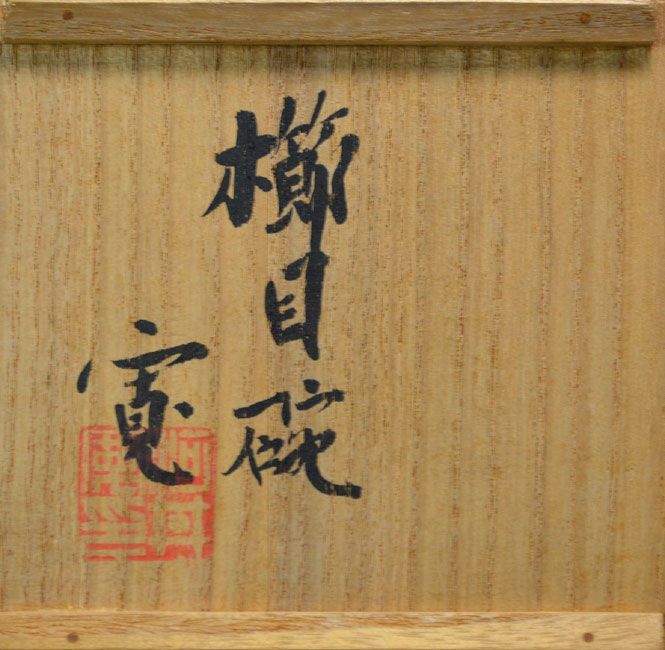 櫛目碗
寛